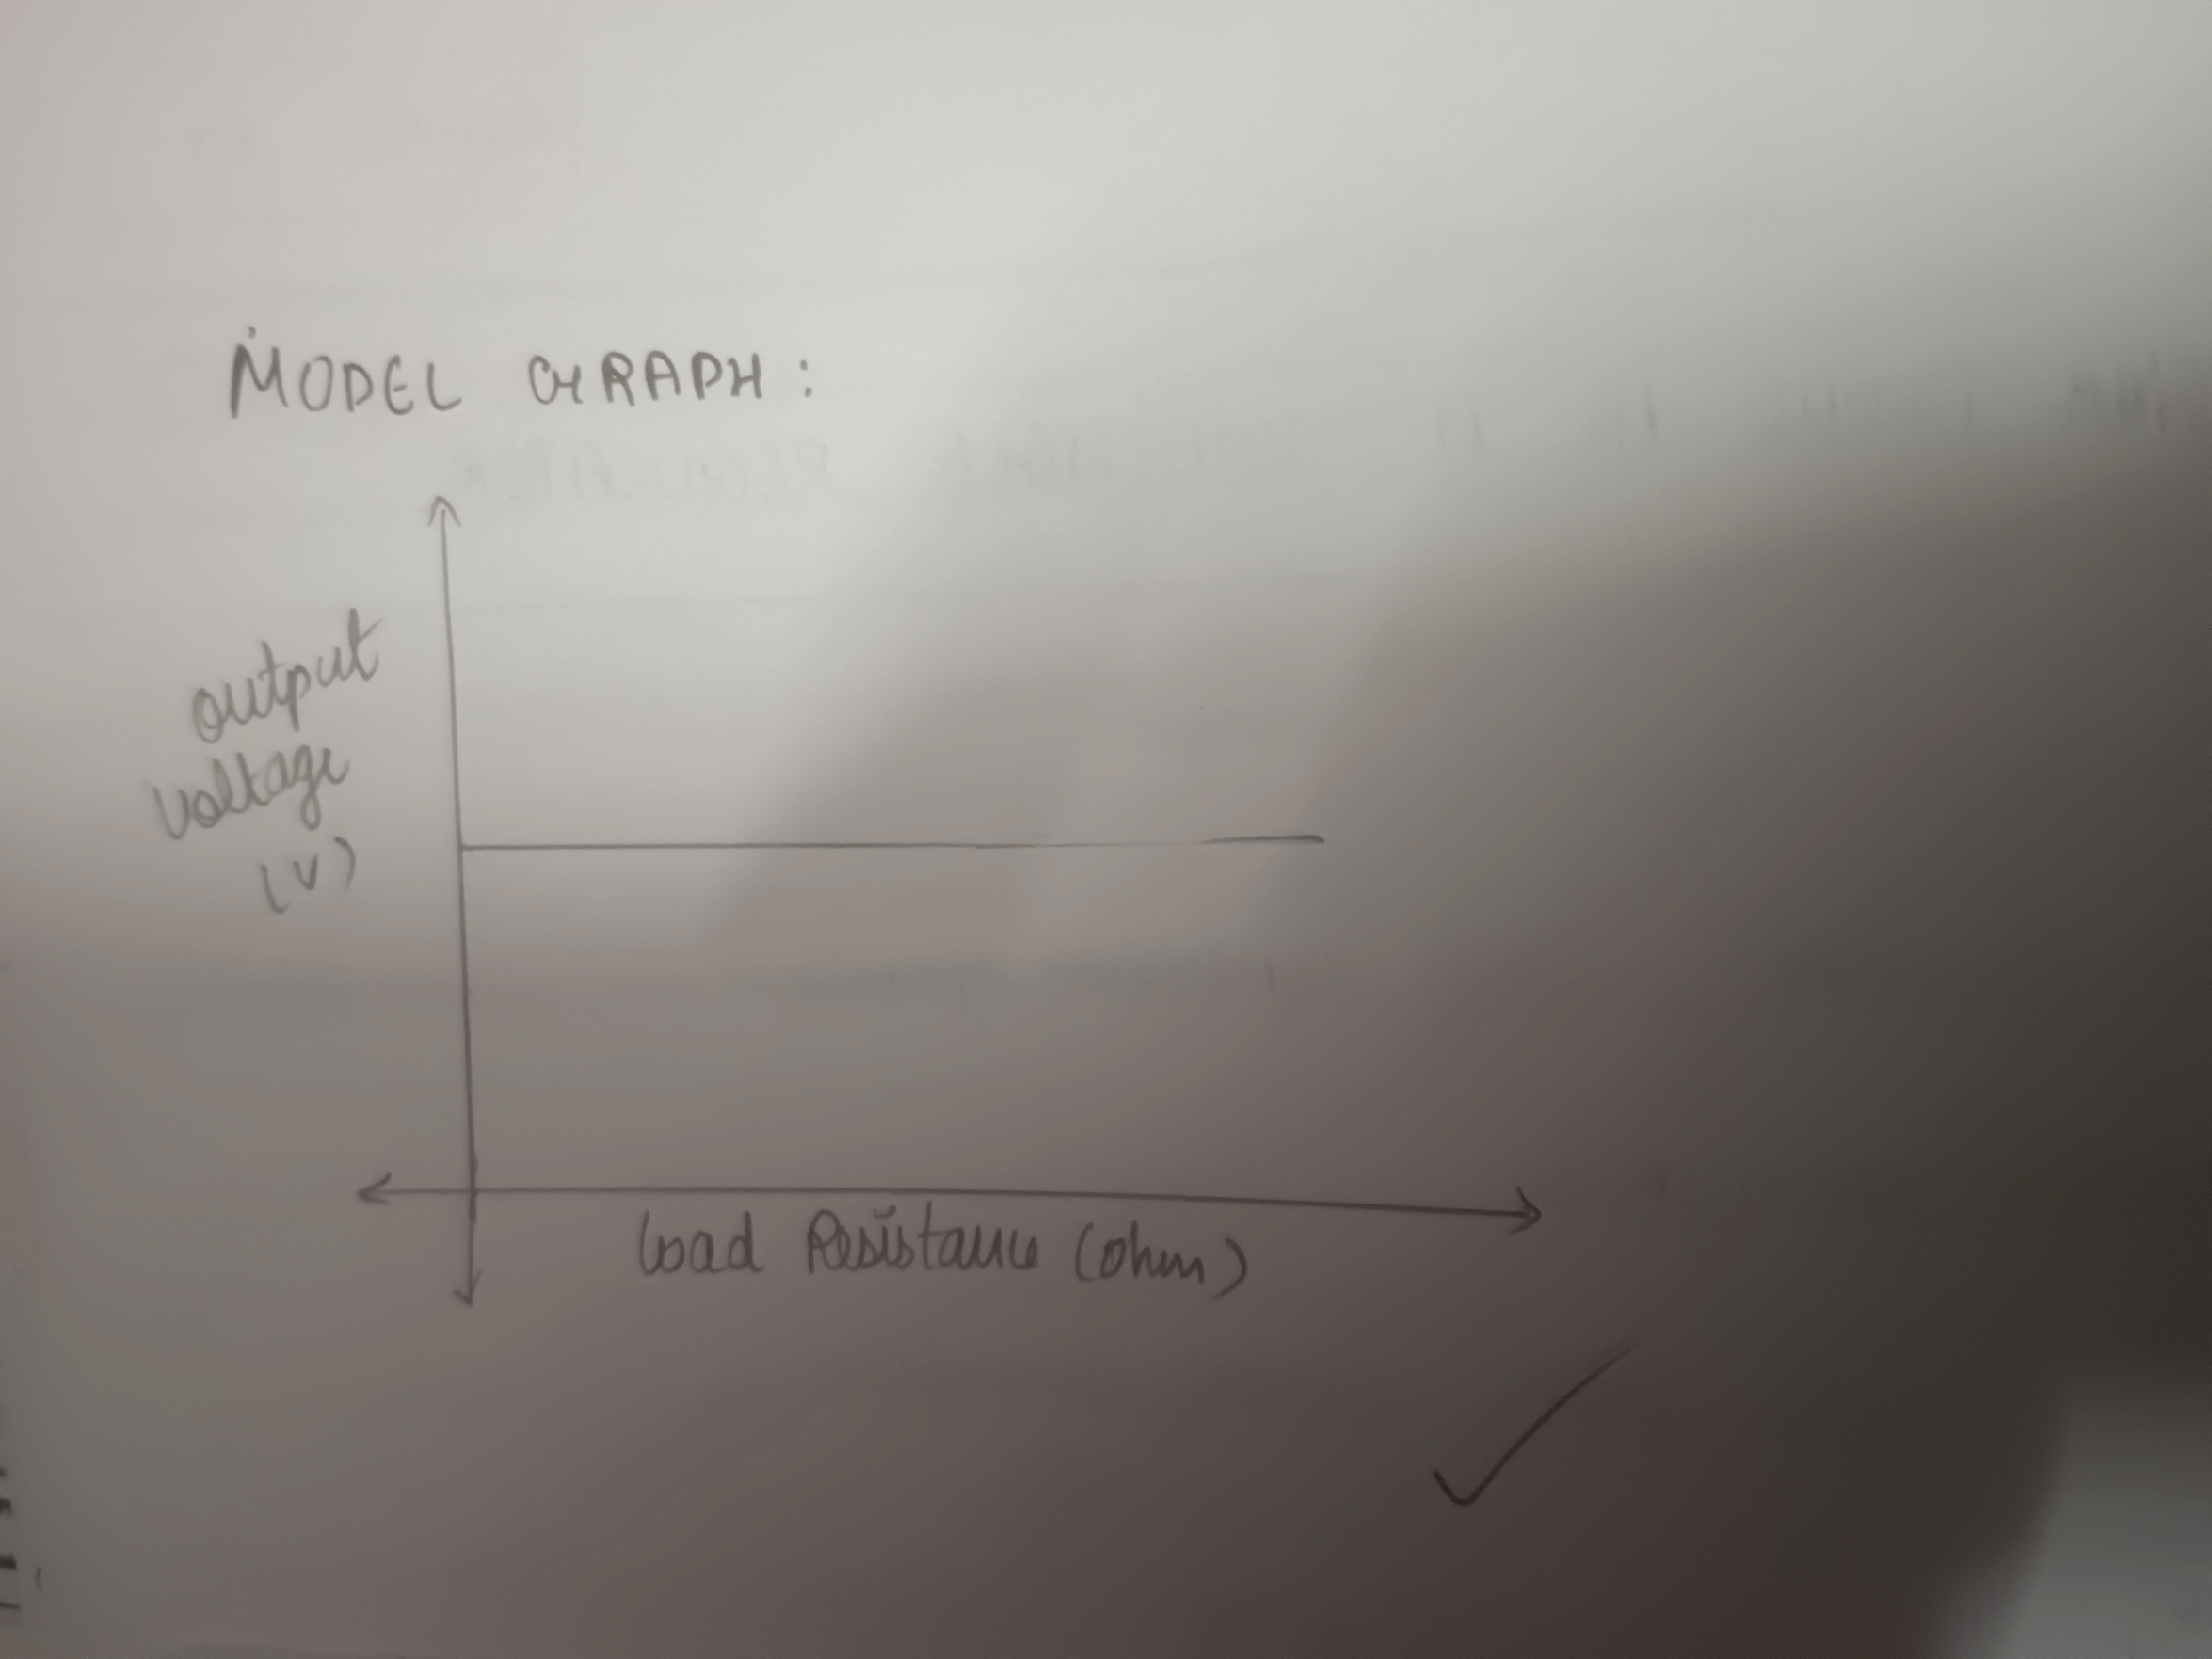 MODEL GRAPH:
output
voltage
(V)
load Resistance (ohm)